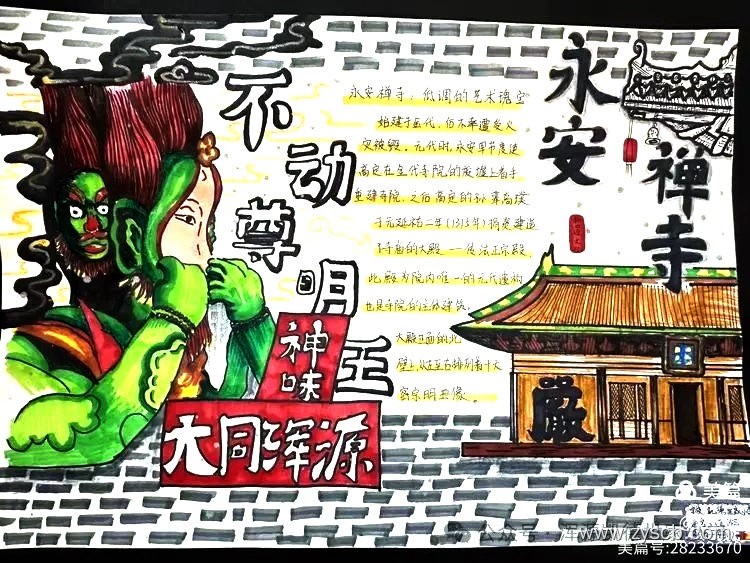 不动尊明王
永安禅寺
永安禅寺：低调的艺术瑰宝
始建于五代，仍不幸遭受火
灾被毁。元代时，永安军节度使
高定在金代寺院的废墟上着手
重建寺院，之后高定的孙高璞
于元延祐二年(1315年)将建造
寺庙的大殿——传法正宗殿。
此殿为院内唯一的元代遗构
也是寺院的主体建筑。
大殿正面的北
壁上，从左至右排列着十大
明王像。
神味
大同浑源
严
美篇
公众号·浑
www.rzyscb.com
美篇号:28233670